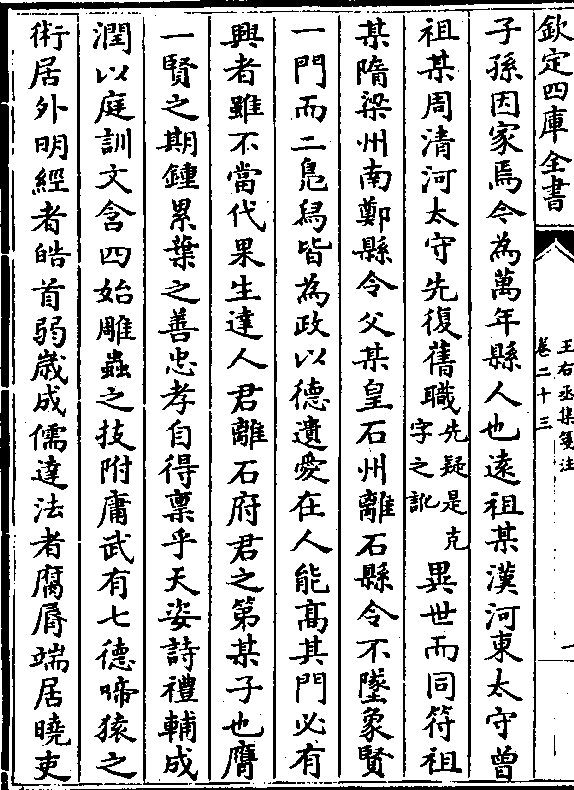 欽定四庫全書
王右丞集箋注
卷二十三
子孫因家焉今為萬年縣人也遠祖某漢河東太守曾
祖某周清河太守先復舊職先疑是克字之訛異世而同符祖
某隋梁州南鄭縣令父某皇石州離石縣令不墜象賢
一門而二鳧舄皆為政以德遺愛在人能高其門必有
興者雖不當代果生達人君離石府君之第某子也膺
一賢之期鍾累葉之善忠孝自得禀乎天姿詩禮輔成
潤以庭訓文含四始雕蟲之技附庸武有七德啼猿之
術居外明經者皓首弱嵗成儒達法者腐脣端居曉吏